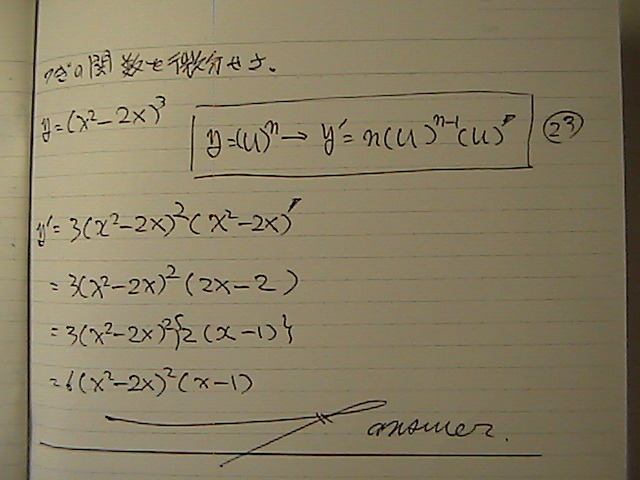 つぎの関数を微分せよ。
y=(x²-2x)³
y=(u)ⁿ→ y′=n(u)ⁿ⁻¹(u)′ ㉓
y′=3(x²-2x)²(x²-2x)′
=3(x²-2x)²(2x-2)
=3(x²-2x)²{2(x-1)}
=6(x²-2x)²(x-1)
answer.